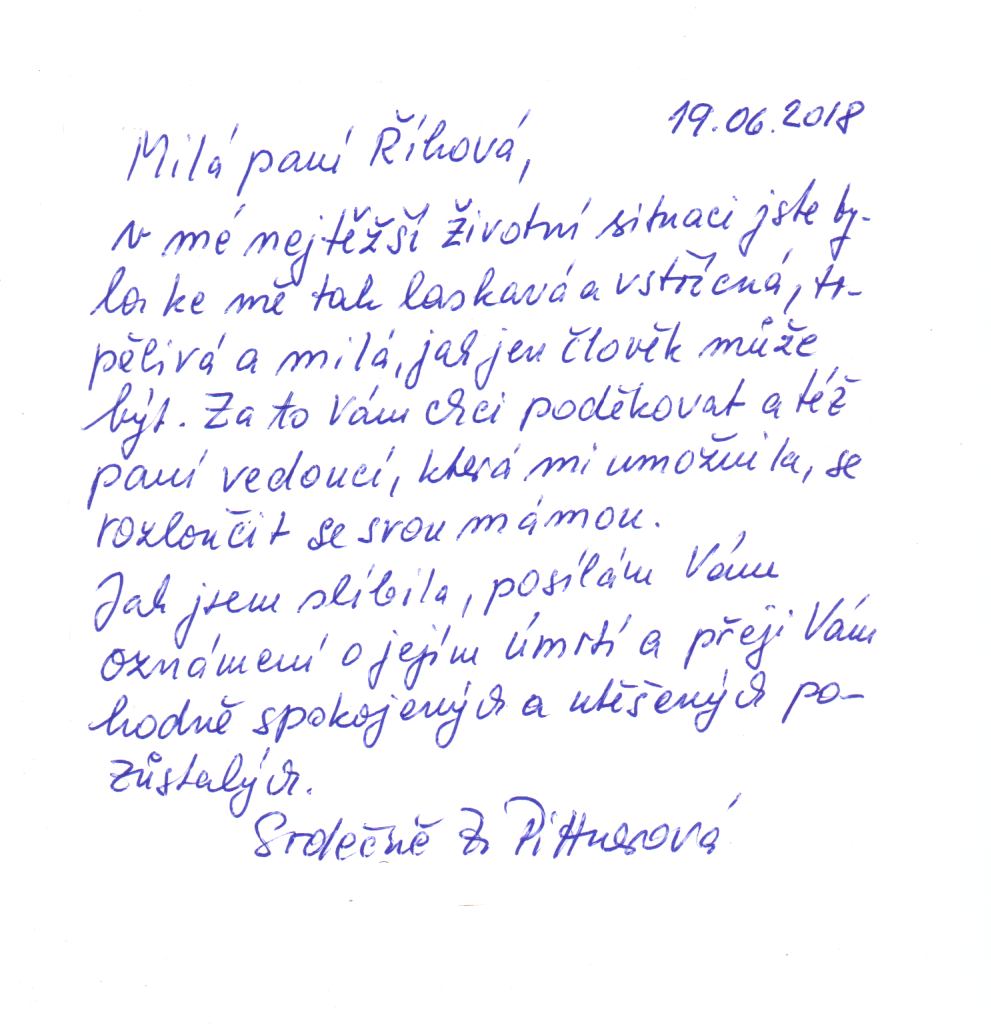 19.06.2018
Milá paní Říhová,
v mé nejtěžší životní situaci jste by-
la ke mě tak laskavá a vstřícná, tr-
pělivá a milá, jak jen člověk může
být. Za to Vám chci poděkovat a též
paní vedoucí, která mi umožnila, se
rozloučit se svou mámou.
Jak jsem slíbila, posílám Vám
oznámení o jejím úmrtí a přeji Vám
hodně spokojených a utěšených po-
zůstalých.
Srdečně Pittnerová